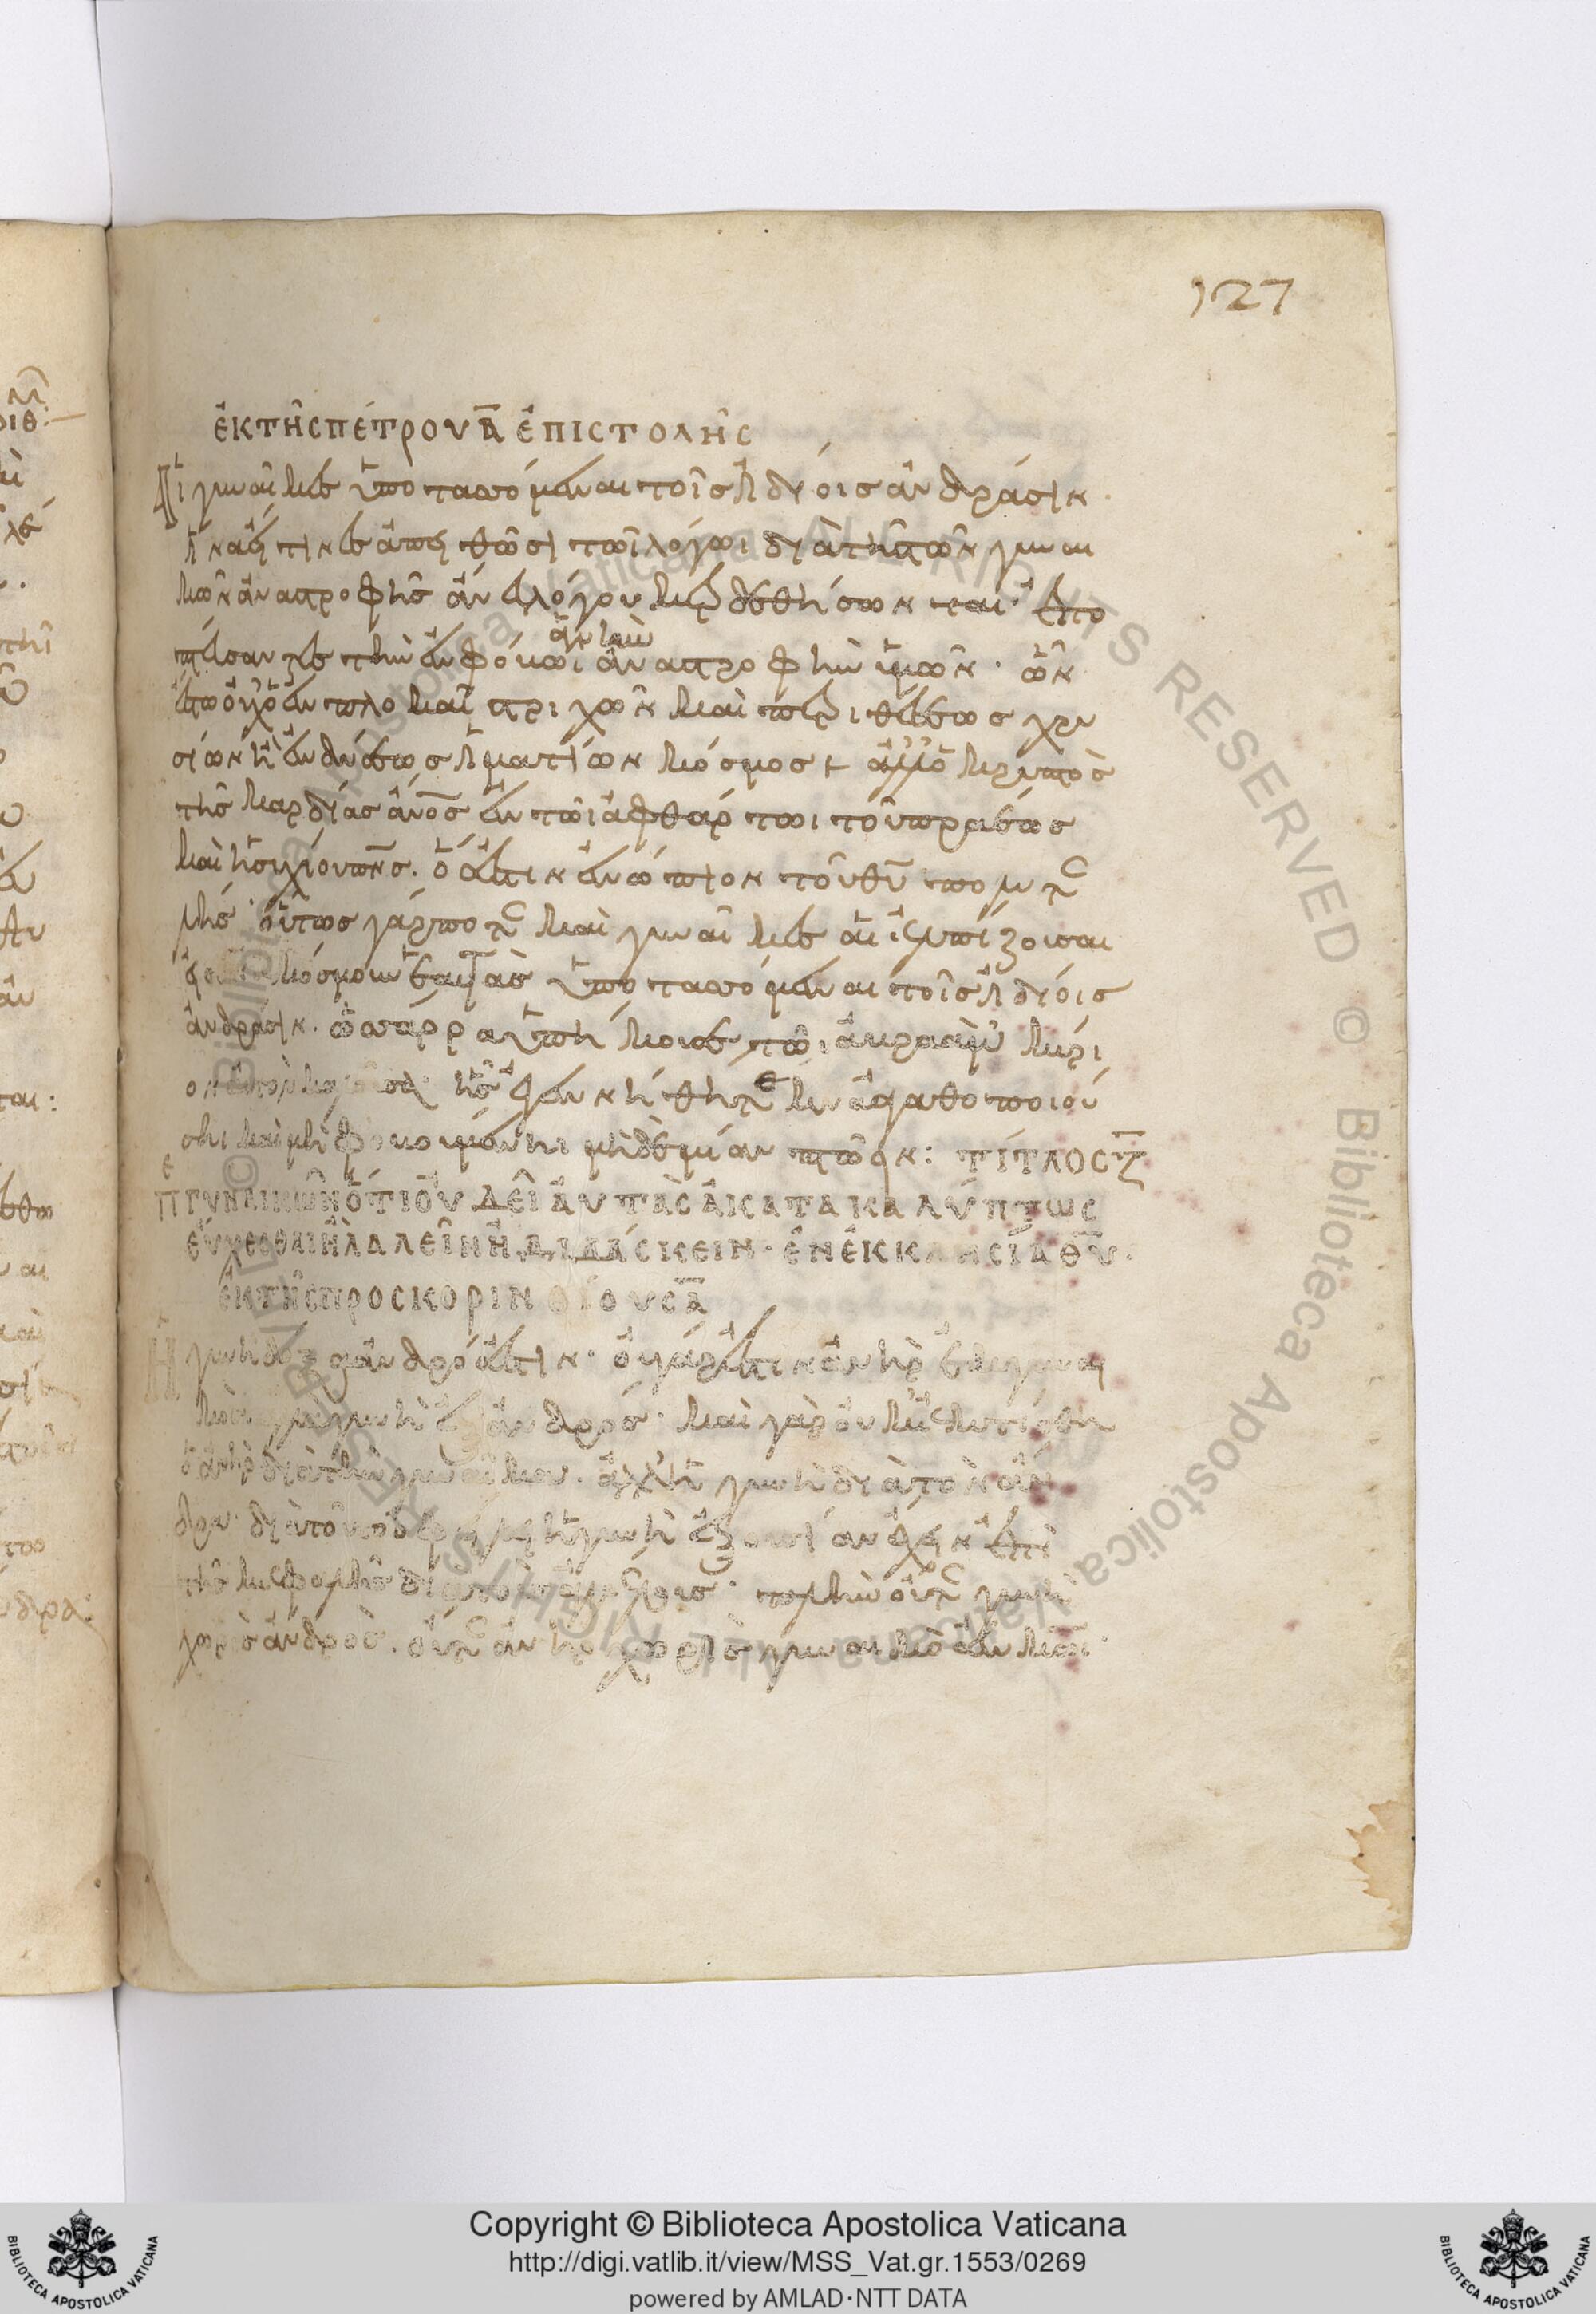 127
ἐκ τῆς πέτρου ᾱ ἐπιστολῆς
Αἱ γυναῖκες ὑποτασσόμεναι τοῖς ἰδίοις ἀνδράσιν
ἵνα εἴ τινες ἀπειθῶσι τῶι λόγωι διὰ τῆς τῶν γυναι
κῶν ἀναστροφῆς ἄνευ λόγου κερδεθήσωνται· ἐπο
πτεύσαντες τὴν ἐν φόβωι ἁγνὴν ἀναστροφὴν ὑμῶν· ὧν
ἔστω οὐχ ὁ ἐμπλοκαὶ τριχῶν καὶ περιθέσεως χρυ
σίων ἢ ἐνδύσεως ἱματίων κόσμος + ἀλλ' ὁ κρυπτὸς
τῆς καρδίας ἄν̅ο̅ς̅ ἐν τῶι ἀφθάρτωι τοῦ πραέως
καὶ ἡσυχίου πν̅ς̅. ὅ ἐστιν ἐνώπιον τοῦ θ̅υ̅ πολυτε
λής· οὕτως γάρ ποτε καὶ γυναῖκες αἱ ἐλπίζουσαι
κόσμουν ἑαυτὰς ὑποτασσόμεναι τοῖς ἰδίοις
ἀνδράσιν. ὡς σάρρα ὑπήκουσε τῶι ἀβραὰμ κύρι
ον αὐτὸν καλοῦσα ἧς ἐγενήθητε τέκνα ἀγαθοποιού
σαι καὶ μὴ φοβούμεναι μηδεμίαν πτόησιν: τίτλος ζ̅
Περὶ γυναικῶν ὅτι οὐ δεῖ αὐτὰς ἀκατακαλύπτως
εὔχεσθαι ἢ λαλεῖν ἢ διδάσκειν· ἐν ἐκκλησίαι θ̅υ̅.
ἐκ τῆς προς κορινθίους ᾱ
Ἡ γυνὴ δόξα ἀνδρός ἐστιν· οὐ γάρ ἐστιν ἀνὴρ ἐκ γυναι
κὸς ἀλλὰ γυνὴ ἐξ ἀνδρός· καὶ γὰρ οὐκ ἐκτίσθη
ὁ ἀνὴρ διὰ τὴν γυναῖκα. ἀλλ' ἡ γυνὴ διὰ τὸν ἄν
δρα· διὰ τοῦτο ὀφείλει ἡ γυνὴ ἐξουσίαν ἔχειν ἐπὶ
τῆς κεφαλῆς διὰ τοὺς ἀγγέλους· πλὴν οὔτε γυνὴ
χωρὶς ἀνδρὸς. οὔτε ἀνὴρ χωρὶς γυναικὸς ἐν κ̅ω̅ι̅·
Copyright © Biblioteca Apostolica Vaticana
http://digi.vatlib.it/view/MSS_Vat.gr.1553/0269
powered by AMLAD·NTT DATA